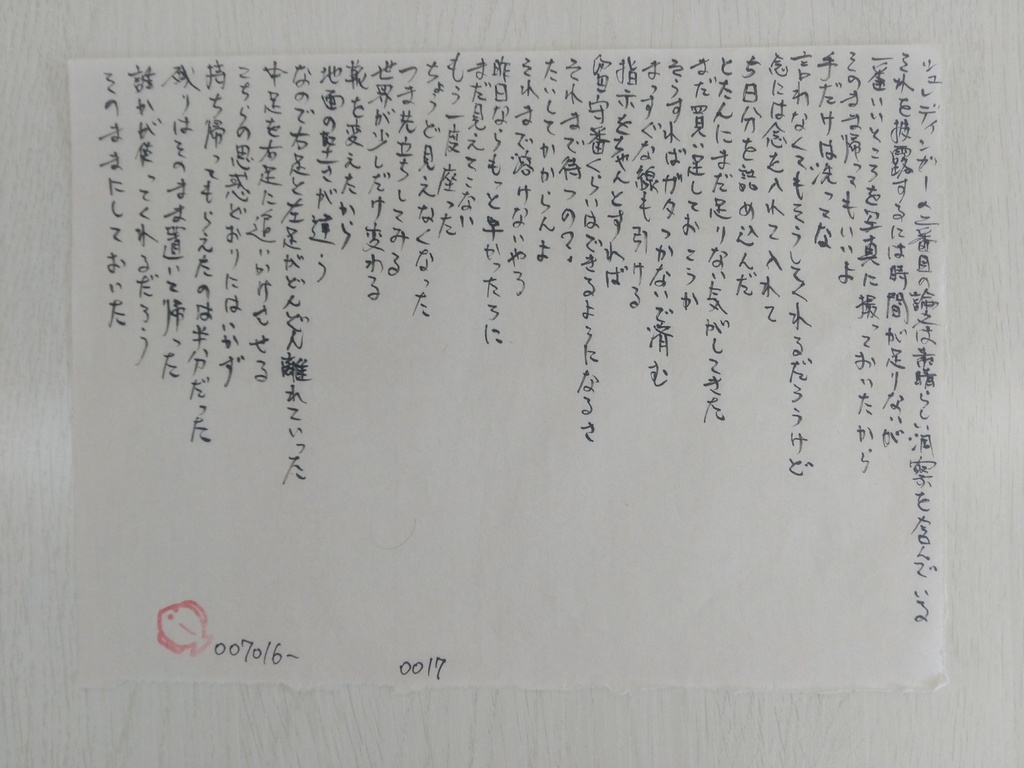 シュレディンガーの二番目の論文は素晴らしい洞察を含んでいる
それを披露するには時間が足りないが
一番いいところを写真に撮っておいたから
そのまま帰ってもいいよ
手だけは洗ってな
言わなくてもそうしてくれるだろうけど
念には念を入れて入れて
5日分を詰め込んだ
とたんにまだ足りない気がしてきた
まだ買い足しておこうか
そうすればガタつかないで済む
まっすぐな線も引ける
指示をちゃんとすれば
留守番くらいはできるようになるさ
それまで待つの?
たいしてかからんよ
それまで溶けないやろ
昨日ならもっと早かったろに
まだ見えてこない
もう一度座った
ちょうど見えなくなった
つま先立ちしてみる
世界が少しだけ変わる
靴を変えたから
地面の堅さが違う
なので右足と左足がどんどん離れていった
中足を右足に追いかけさせる
こちらの思惑どおりにはいかず
持ち帰ってもらえたのは半分だった
残りはそのまま置いて帰った
誰かが使ってくれるだろう
そのままにしておいた
007016~
0017